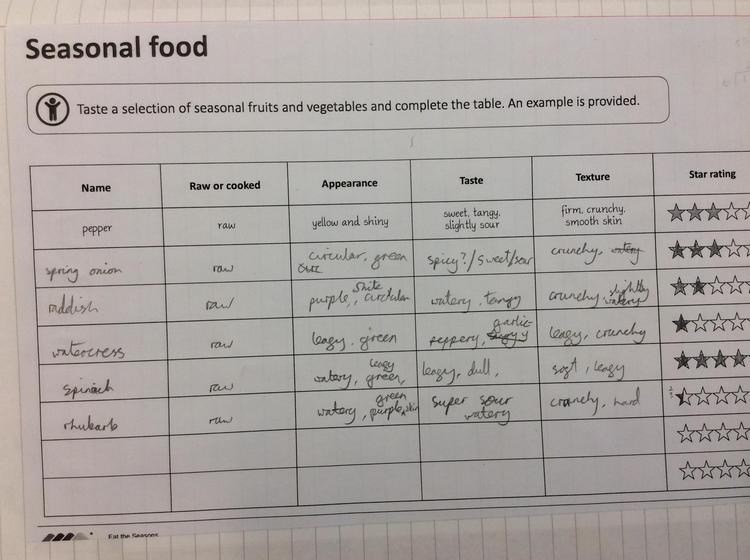 Seasonal food
Taste a selection of seasonal fruits and vegetables and complete the table. An example is provided.
Name Raw or cooked Appearance Taste Texture Star rating
pepper raw yellow and shiny sweet, tangy, slightly sour firm, crunchy, smooth skin
spring onion raw circular, green spicy?/sweet/sour crunchy, watery
raddish raw purple, white circular watery, tangy crunchy, slightly watery
watercress raw leagy, green peppery, garlic leagy, crunchy
spinach raw watery, green, leagy leagy, dull, sogt, leagy
rhubarb raw watery, green purple, skin super sour watery crunchy, hard
Eat the Seasons